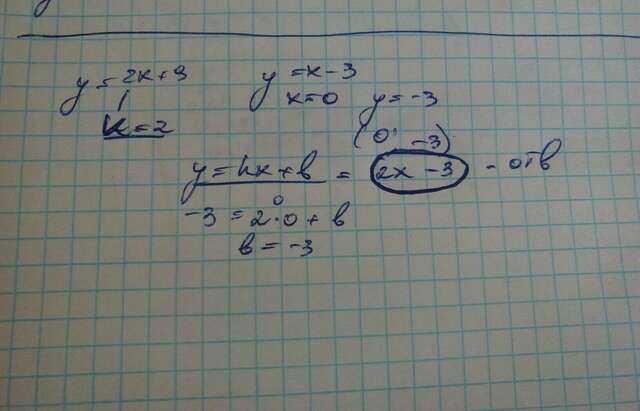 y = 2x + 9 y = x - 3
k = 2 x = 0 y = -3
(0; -3)
y = kx + b = 2x - 3 - отв
-3 = 2·0 + b
b = -3